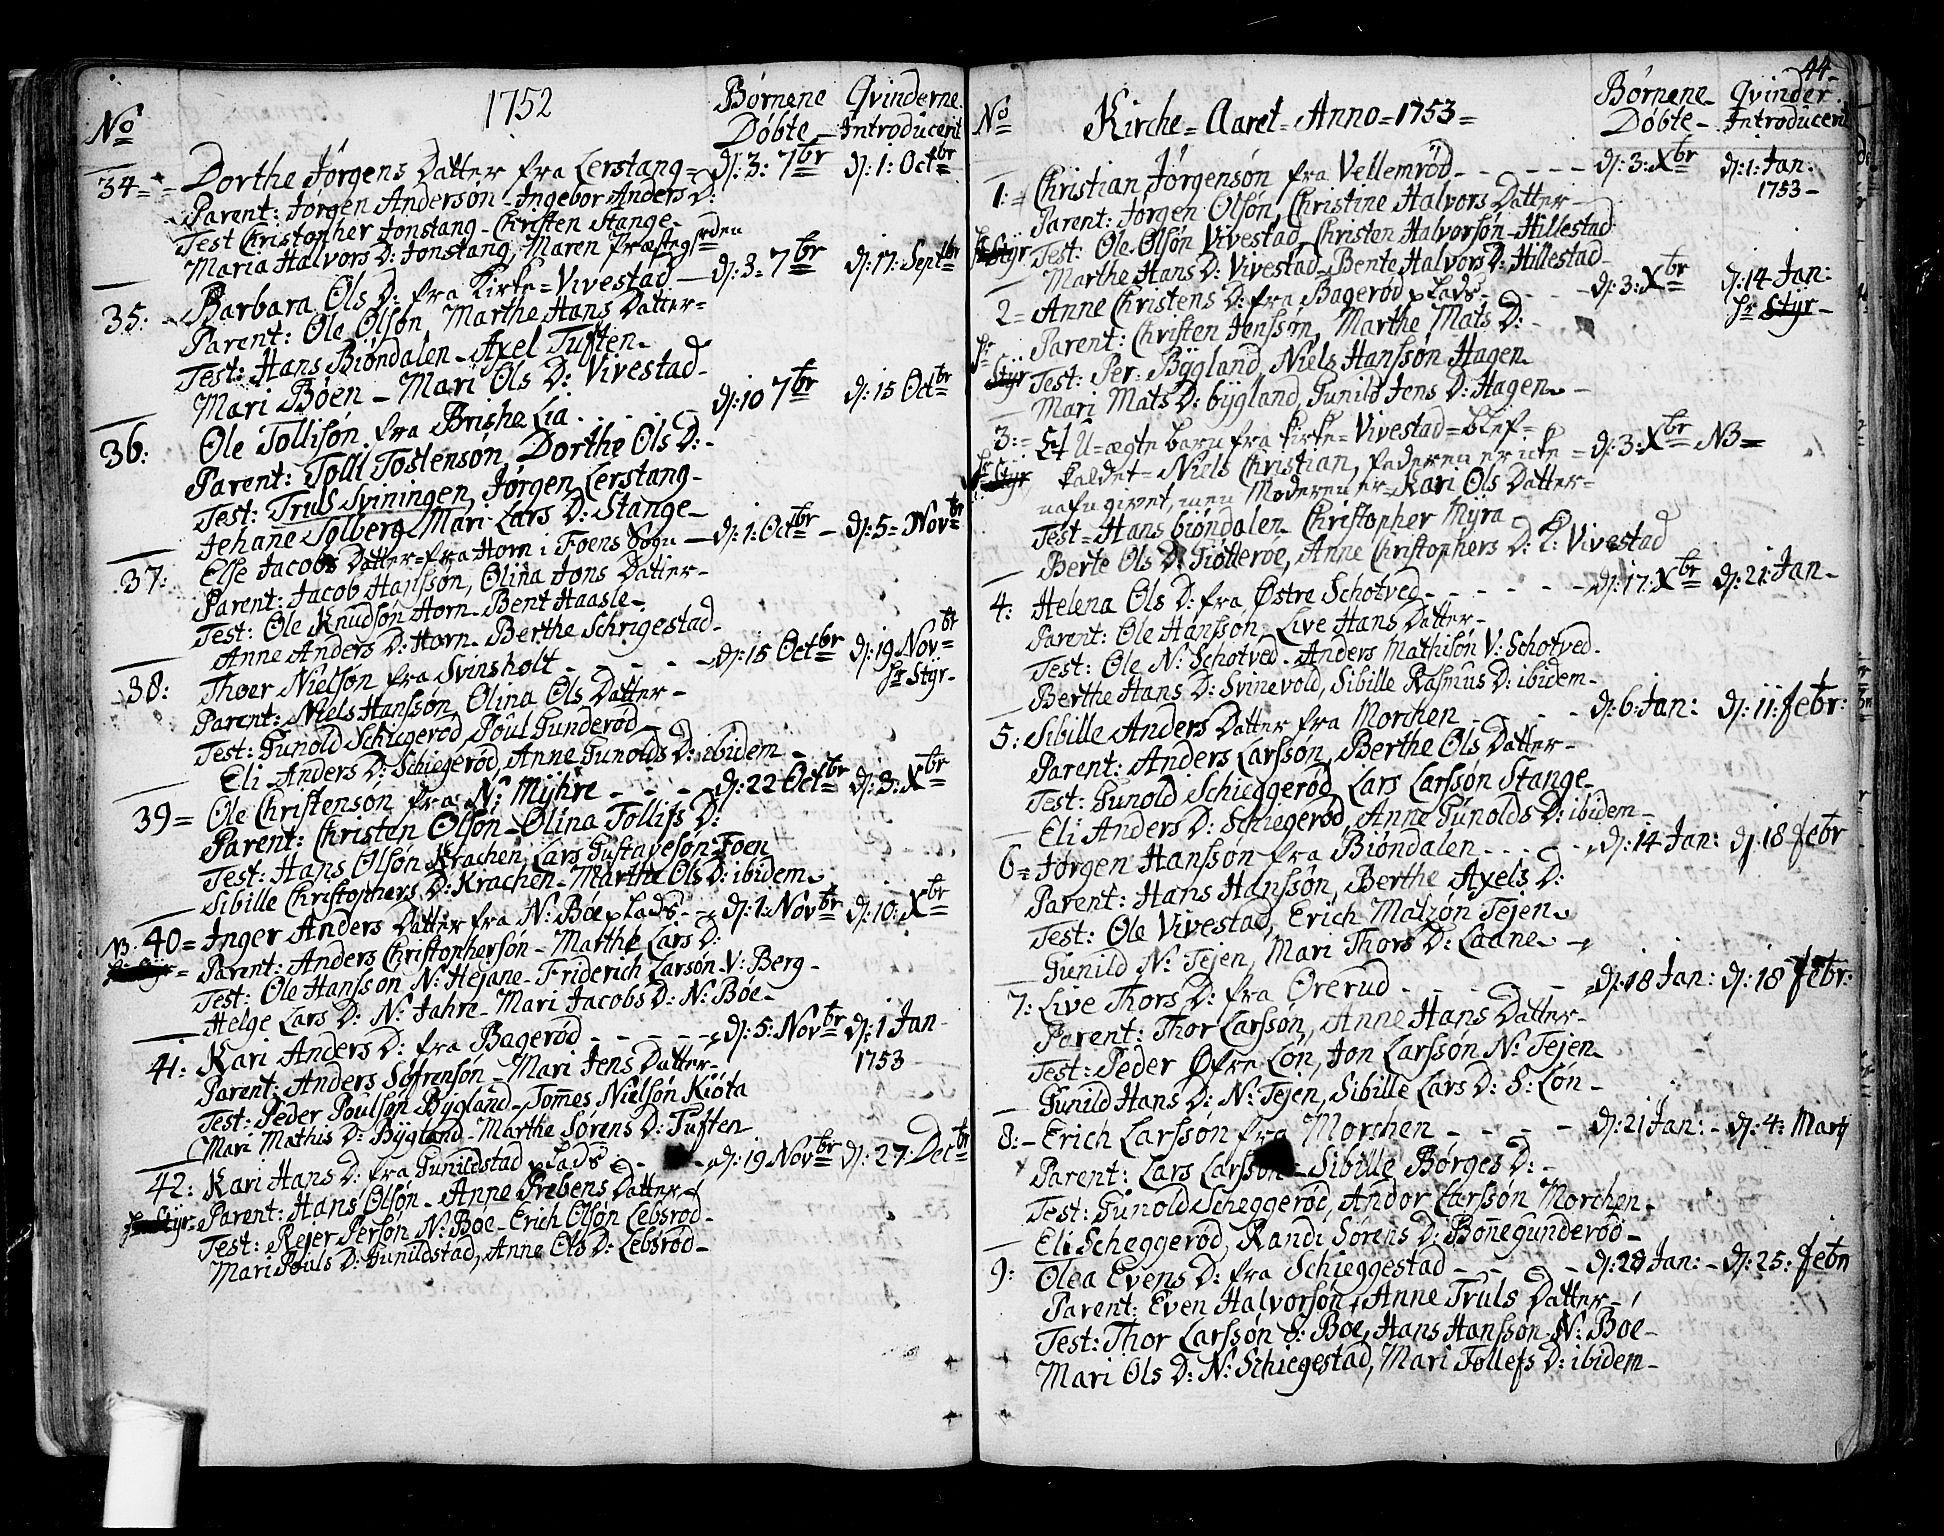 1752
No
Børnene Døbte
Qvinderne Introducerit
34 Dorthe Jørgens Datter fra Lerstang d: 3: 7br d: 1: Octbr
Parent: Jørgen Andersøn - Ingebor Anders D:
Test Christopher Jonstang - Christen Stange
Maria Halvors D: Jonstang, Maren Præstegrden
35: Barbara Ols D: fra Kirke=Vivestad d: 3: 7br d: 17: Septbr
Parent: Ole Olsøn, Marthe Hans Datter
Test: Hans Biøndalen - Axel Tuften
Mari Bøen - Mari Ols D: Vivestad
36: Ole Tollisøn fra Brishe Lia d: 10 7br d: 15 Octbr
Parent: Tolli Tostensøn, Dorthe Ols D:
Test: Truls Sviningen, Jørgen Lerstang
Jehane Solberg, Mari Lars D: Stange
37: Else Jacobs Datter fra Horn i Foens Sogn d: 1: Octbr d: 5 Novbr
Parent: Jacob Hanssøn, Olina Jons Datter
Test: Ole Knudsøn Horn - Bent Haasle
Anne Anders D: Horn - Berthe Schrigestad
38: Thoer Nielsøn fra Svinsholt d: 15 Octbr d: 19 Novbr
Hr Styr
Parent: Niels Hanssøn, Olina Ols Datter
Test: Gunold Schiegerød, Poul Gunderød
Eli Anders D: Schiegerød, Anne Gunolds D: ibidem
39 = Ole Christensøn fra N: Myhre d: 22 Octbr d: 3: Xbr
Parent: Christen Olsøn - Olina Tollifs D:
Test: Hans Olsøn Krachen, Lars Gustavesøn Foen
Sibille Christophers D: Krachen - Marthe Ols D: ibidem
N3. 40 = Inger Anders Datter fra N: Bøe plads d: 1: Novbr d: 10: Xbr
Parent: Anders Christophersøn - Marthe Lars D:
Test: Ole Hanssøn N: Hejane - Friderich Larsøn V: Berg
Helge Lars D: N: Jahre - Mari Jacobs D: N: Bøe
41: Kari Anders D: fra Bagerød d: 5: Novbr d: 1 Jan 1753
Parent: Anders Søfrensøn - Mari Jens Datter
Test: Peder Poulsøn Bygland - Tom̄es Nielsøn Kiøta
Mari Mathis D: Bygland - Marthe Sørens D: Tuften
42: Kari Hans D: fra Gunildstad plads d: 19 Novbr d: 27: Decbr
Hr Styr Parent: Hans Olsøn - Anne Prebens Datter
Test: Rejer Persøn N: Bøe - Erich Olsøn Lebsrød
Mari Pouls D: Gunildstad, Anne Ols D: Lebsrød
44
No
Kirche = Aaret = Anno = 1753 =
Børnene Døbte
Qvinder Introducerit
1: Christian Jørgensøn fra Vellemrød d: 3: Xbr d: 1: Jan. 1753
Parent: Jørgen Olsøn, Christine Halvors Datter
Hr Styr Test: Ole Olsøn Vivestad, Christen Halvorsøn Hillestad
Marthe Hans D: Vivestad, Bente Halvors D: Hillestad
2 = Anne Christens D: fra Bagerød plads d: 3: Xbr d: 14 Jan:
Hr Styr
Parent: Christen Jenssøn, Marthe Mats D:
Hr Styr Test: Per: Bygland, Niels Hanssøn Hagen
Mari Mats D: bygland, Gunild Jens D: Hagen
3: Et U=ægte barn fra Kirke=Vivestad = blef d: 3: Xbr N3
Hr Styr kaldet = Niels Christian, faderen er icke
nafngivet, men Moderen er = Kari Ols Datter
Test = Hans biøndalen, Christopher Myra
Berte Ols D: Giølleroe, Anne Christophers D: Vivestad
4: Helena Ols D: fra Østre Schotved d: 17: Xbr d: 21: Jan
Parent: Ole Hanssøn, Live Hans Datter
Test: Ole N: Schotved - Anders Mathisøn V: Schotved
Berthe Hans D: Svinevold, Sibille Rasmus D: ibidem
5: Sibille Anders Datter fra Morchen d: 6: Jan: d: 11: febr:
Parent: Anders Larssøn, Berthe Ols Datter
Test: Gunold Schieggerød, Lars Larssøn Stange
Eli Anders D: Schiegerød, Anne Gunolds D: ibidem
6 = Jørgen Hanssøn fra Biøndalen d: 14 Jan: d: 18 febr
Parent: Hans Hanssøn, Berthe Axels D:
Test: Ole Vivestad, Erich Matzøn Tejen
Gunild N: Tejen, Mari Thors D: Laane
7: Live Thors D: fra Orerud d: 18 Jan: d: 18 febr:
Parent: Thor Larssøn, Anne Hans Datter
Test: Peder Øfre Løn, Jon Larssøn N: Tejen
Gunild Hans D: N: Tejen, Sibille Lars D: S: Løn
8: Erich Larssøn fra Morschen d: 21 Jan: d: 4: Martj
Parent: Lars Larssøn - Sibille Børges D:
Test: Gunold Scheggerød, Andor Larssøn Morchen
Eli Scheggerød, Randi Sørens D: Bon̄egunderød
9: Olea Evens D: fra Schieggestad d: 28 Jan: d: 25: febr
Parent: Even Halvorsøn, Anne Truls Datter
Test: Thor Larssøn S: Bøe, Hans Hanssøn N: Boe
Mari Ols D: N: Schiegestad, Mari Tollefs D: ibidem